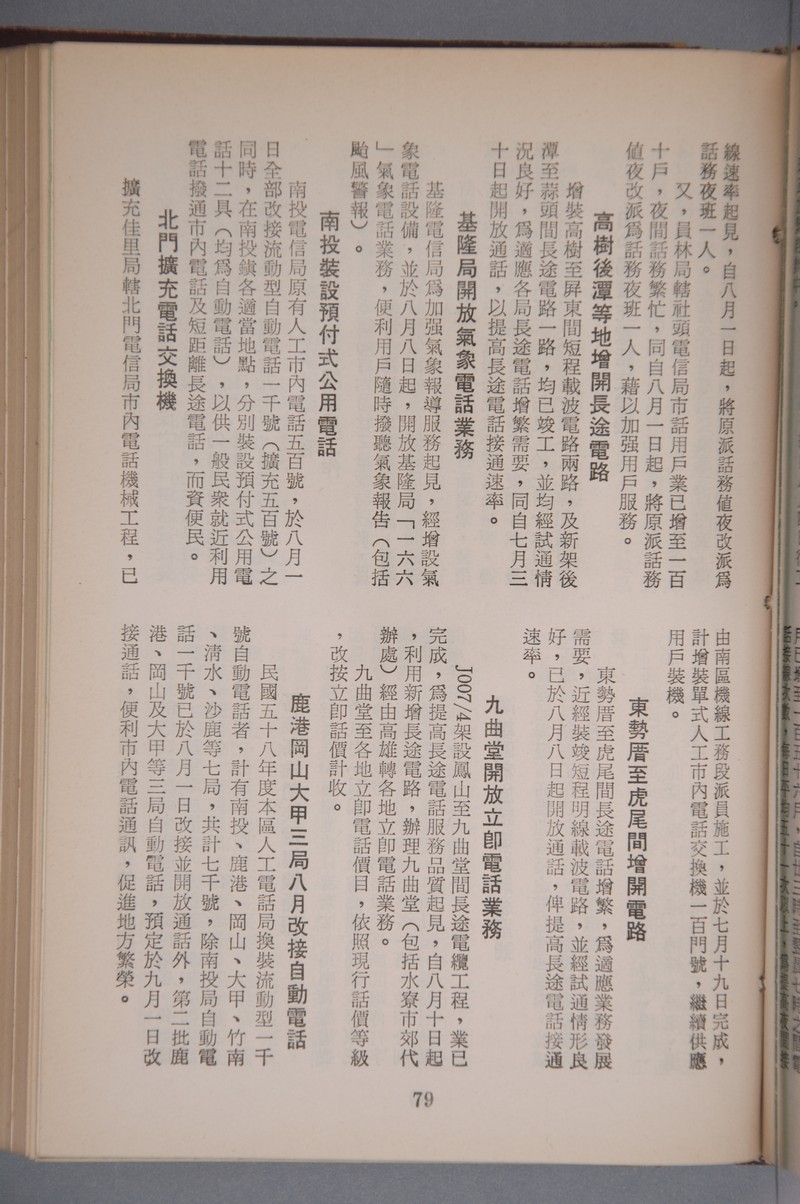 線速率起見，自八月一日起，將原派話務値夜改派爲
話務夜班一人。
又，員林局轄社頭電信局市話用戶業已增至一百
十戶，夜間話務繁忙，同自八月一日起，將原派話務
値夜改派爲話務夜班一人，藉以加强用戶服務。
高樹後潭等地增開長途電路
增裝高樹至屏東間短程載波電路兩路，及新架後
潭至蒜頭間長途電路一路，均已竣工，並均經試通情
況良好，爲適應各局長途電話增繁需要，同自七月三
十日起開放通話，以提高長途電話接通速率。
基隆局開放氣象電話業務
基隆電信局爲加强氣象報導服務起見，經增設氣
象電話設備，並於八月八日起，開放基隆局「一六六
」氣象電話業務，便利用戶隨時撥聽氣象報告（包括
颱風警報）。
南投裝設預付式公用電話
南投電信局原有人工市內電話五百號，於八月一
日全部改接流動型自動電話一千號（擴充五百號）之
同時，在南投鎭各適當地點，分別裝設預付式公用電
話十二具（均爲自動電話），以供一般民衆就近利用
電話撥通市內電話及短距離長途電話，而資便民。
北門擴充電話交換機
擴充佳里局轄北門電信局市內電話機械工程，已
由南區機線工務段派員施工，並於七月十九日完成，
計增裝單式人工市內電話交換機一百門號，繼續供應
用戶裝機。
東勢厝至虎尾間增開電路
東勢厝至虎尾間長途電話增繁，爲適應業務發展
需要，近經裝竣短程明線載波電路，並經試通情形良
好，已於八月八日起開放通話，俾提高長途電話接通
速率。
九曲堂開放立卽電話業務
J007/4架設鳳山至九曲堂間長途電纜工程，業已
完成，爲提高長途電話服務品質起見，自八月十日起
，利用新增長途電路，辦理九曲堂（包括水寮市郊代
辦處）經由高雄轉各地立卽電話業務。
九曲堂至各地立卽電話價目，依照現行話價等級
，改按立卽話價計收。
鹿港岡山大甲三局八月改接自動電話
民國五十八年度本區人工電話局換裝流動型一千
號自動電話者，計有南投、鹿港、岡山、大甲、竹南
、清水、沙鹿等七局，共計七千號，除南投局自動電
話一千號已於八月一日改接並開放通話外，第二批鹿
港、岡山及大甲等三局自動電話，預定於九月一日改
接通話，便利市內電話通訊，促進地方繁榮。
79